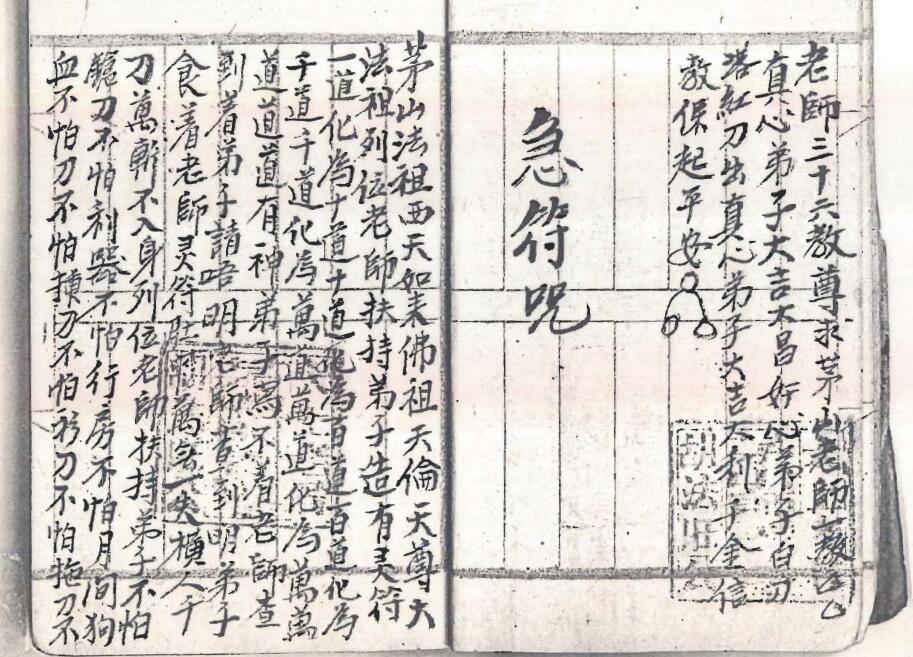 老師三十六教尊求茅山老師教
真心弟子大吉大昌奸心弟子白刀
塔紅刀出真心弟子大吉大利千金信
教保起平安
急符咒
茅山法祖西天如来佛祖天倫天尊大
法祖列位老師扶持弟子造有灵符
一道化為十道十道化為百道百道化為
千道千道化為萬道萬道化為萬萬
道道道道有神弟子寫不着老師查
到着弟子請唔明老師查到明弟子
食着老師灵符萬無一失橫人千
刀萬斬不入身列位老師扶持弟子不怕
刀不怕利器不怕行房不怕月间狗
血不怕刀不怕刀不怕刀不怕拖刀不